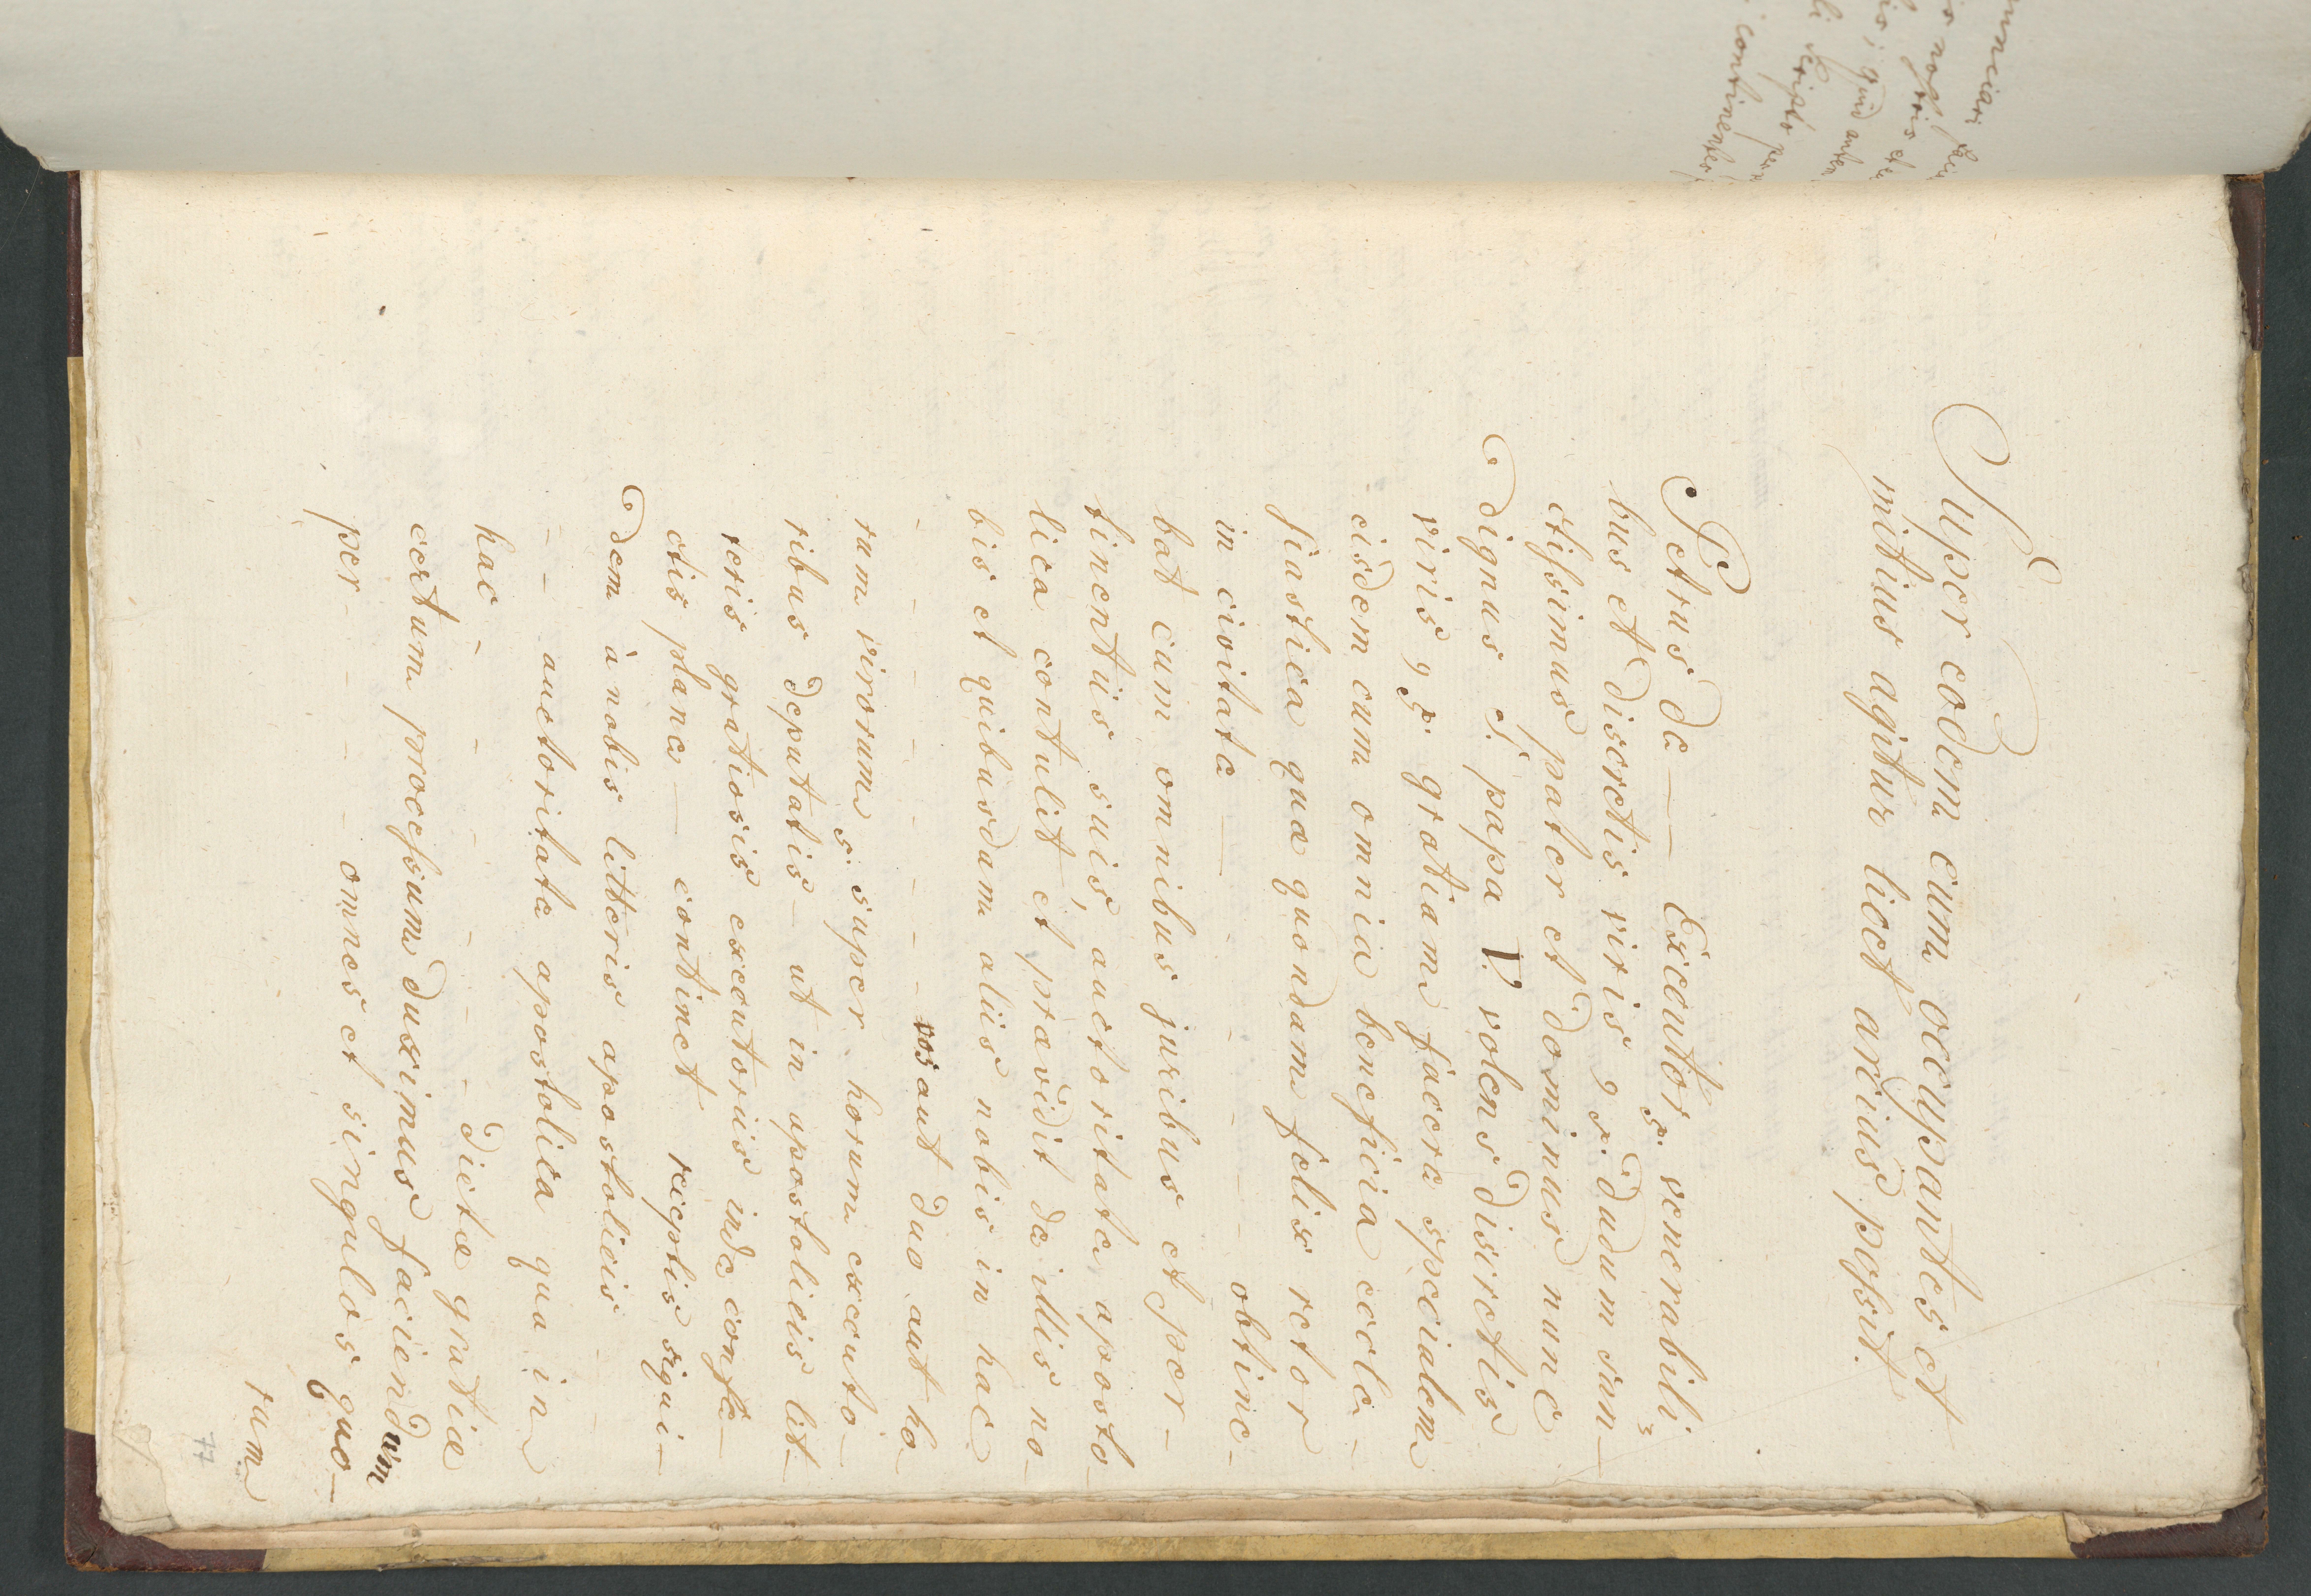 Super eodem cum occupantes et
mitius agitur licet arcius possit.
Petrus de — — Executor s. venerabili
bus et discretis viris, s. dudum san—
ctissimus pater et dominus nunc
dignus s. papa V. volens discretis
viris, s. gratiam facere specialem
eisdem cum omnia beneficia eccle-
siastica quae quondam felix retor
in civitate — - - - - obtine-
bat cum omnibus juribus et per-
tinentiis suis, auctoritate aposto-
lica contulit et praevidit de illis no-
bis et quibusdam aliis nobis in hac
- - - - - - - - vos aut duo aut ho-
rum virorum s. super horum executo-
ribus deputatis – ut in apostolicis lit-
teris gratiosis executoriis inde confe-
ctis plane — continet receptis siqui-
dem à nobis litteris apostolicis -
- - auctoritate apostolica qua in
hac - - - - - - - dictae gratiae
certum processum duximus faciendum
per - - - omnes et singulos quo-
rum
77
continentes